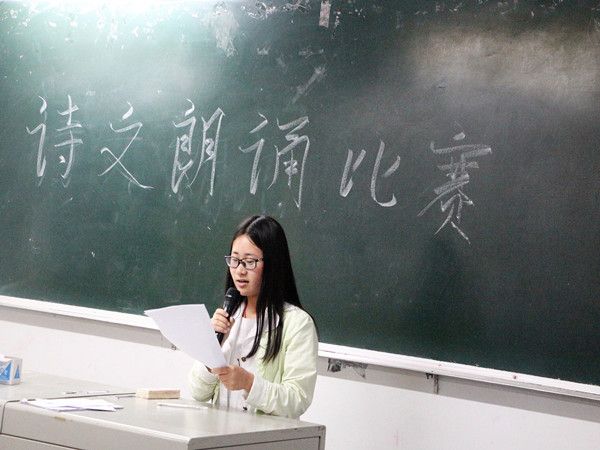 诗文朗诵比赛